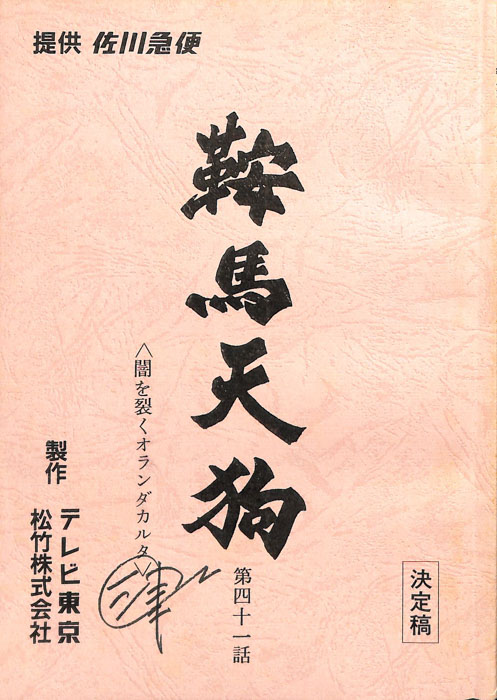 提供 佐川急便
鞍馬天狗
第四十一話
＜闇を裂くオランダカルタ＞
決定稿
製作
テレビ東京
松竹株式会社